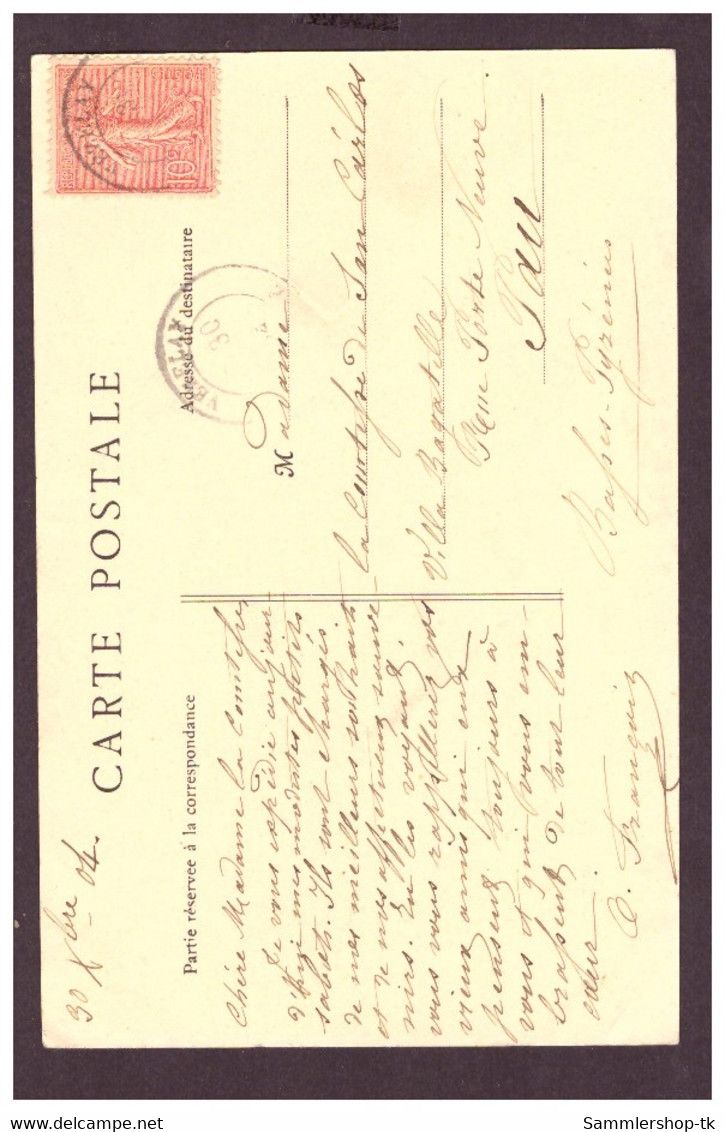 30 Xbre 04.
CARTE POSTALE
Partie réservée à la correspondance
Chère Madame la Comtesse,
Je vous expédie aujour-
d'hui mes modestes petits
sabots. Ils sont chargés
de mes meilleurs souhaits
et de mes affectueux souve-
nirs. En les voyant,
vous vous rappellerez vos
vieux amis qui eux
pensent toujours à
vous et qui vous em-
brassent de tout leur
cœur.
O. François
Adresse du destinataire
Madame
la Comtesse de San Cárlos
Villa Bagatelle
Rue Porte Neuve
Pau
Basses-Pyrénées
VEZELAY
VEZELAY
30
10c
www.delcampe.net
Sammlershop-tk